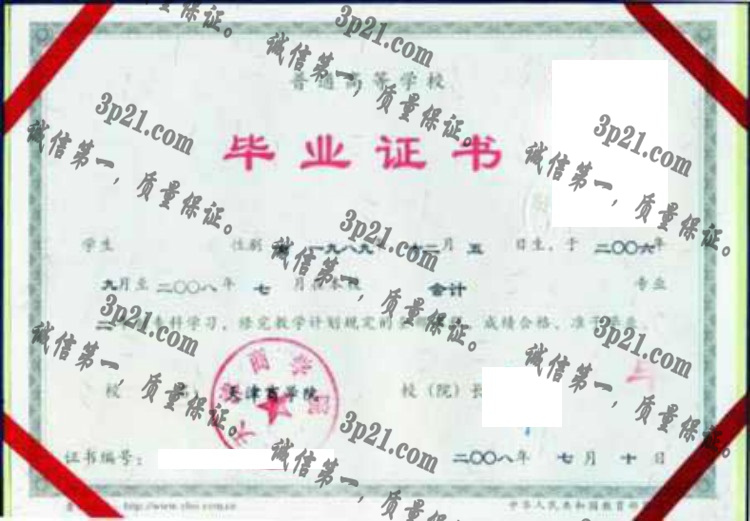 3p21.com
诚信第一,质量保证。
普通高等学校
毕业证书
3p21.com
诚信第一,质量保证。
3p21.com
诚信第一,质量保证。
学生 性别 一九八九 二月五日生,于二〇〇六年
九月至二〇〇八年七月在本校 会计 专业
二 专科学习,修完教学计划规定的 成绩合格,准予毕业。
3p21.com
诚信第一,质量保证。
3p21.com
诚信第一,质量保证。
校 名:天津商学院 校(院)长
天津商学院
3p21.com
诚信第一,质量保证。
证书编号: 二〇〇八年七月十日
3p21.com
诚信第一,质量保证。
中华人民共和国教育部